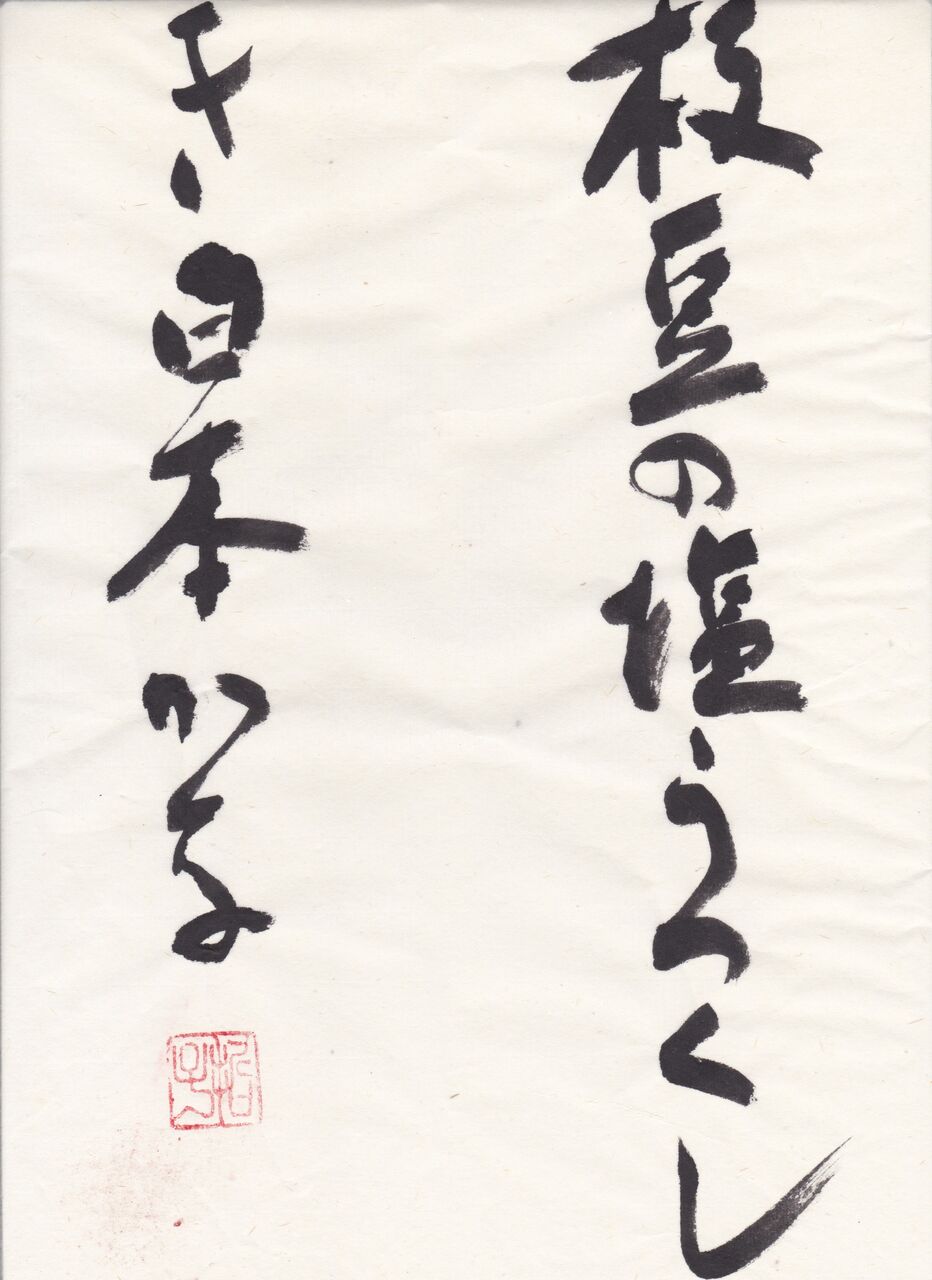 枝豆の塩うつくし
き日本かな